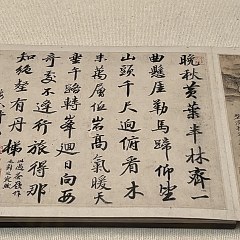 晚秋黃葉半林齊一
曲懸崖勒馬蹄仰望
山頭千丈迥俯看木
末萬層低岩高氣暖天
垂午路轉峯迴日向西
奇不逢行旅得那
知絕有丹梯